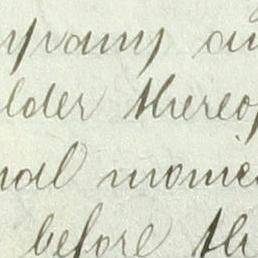 mpany an
older thereof
nal mome
before th